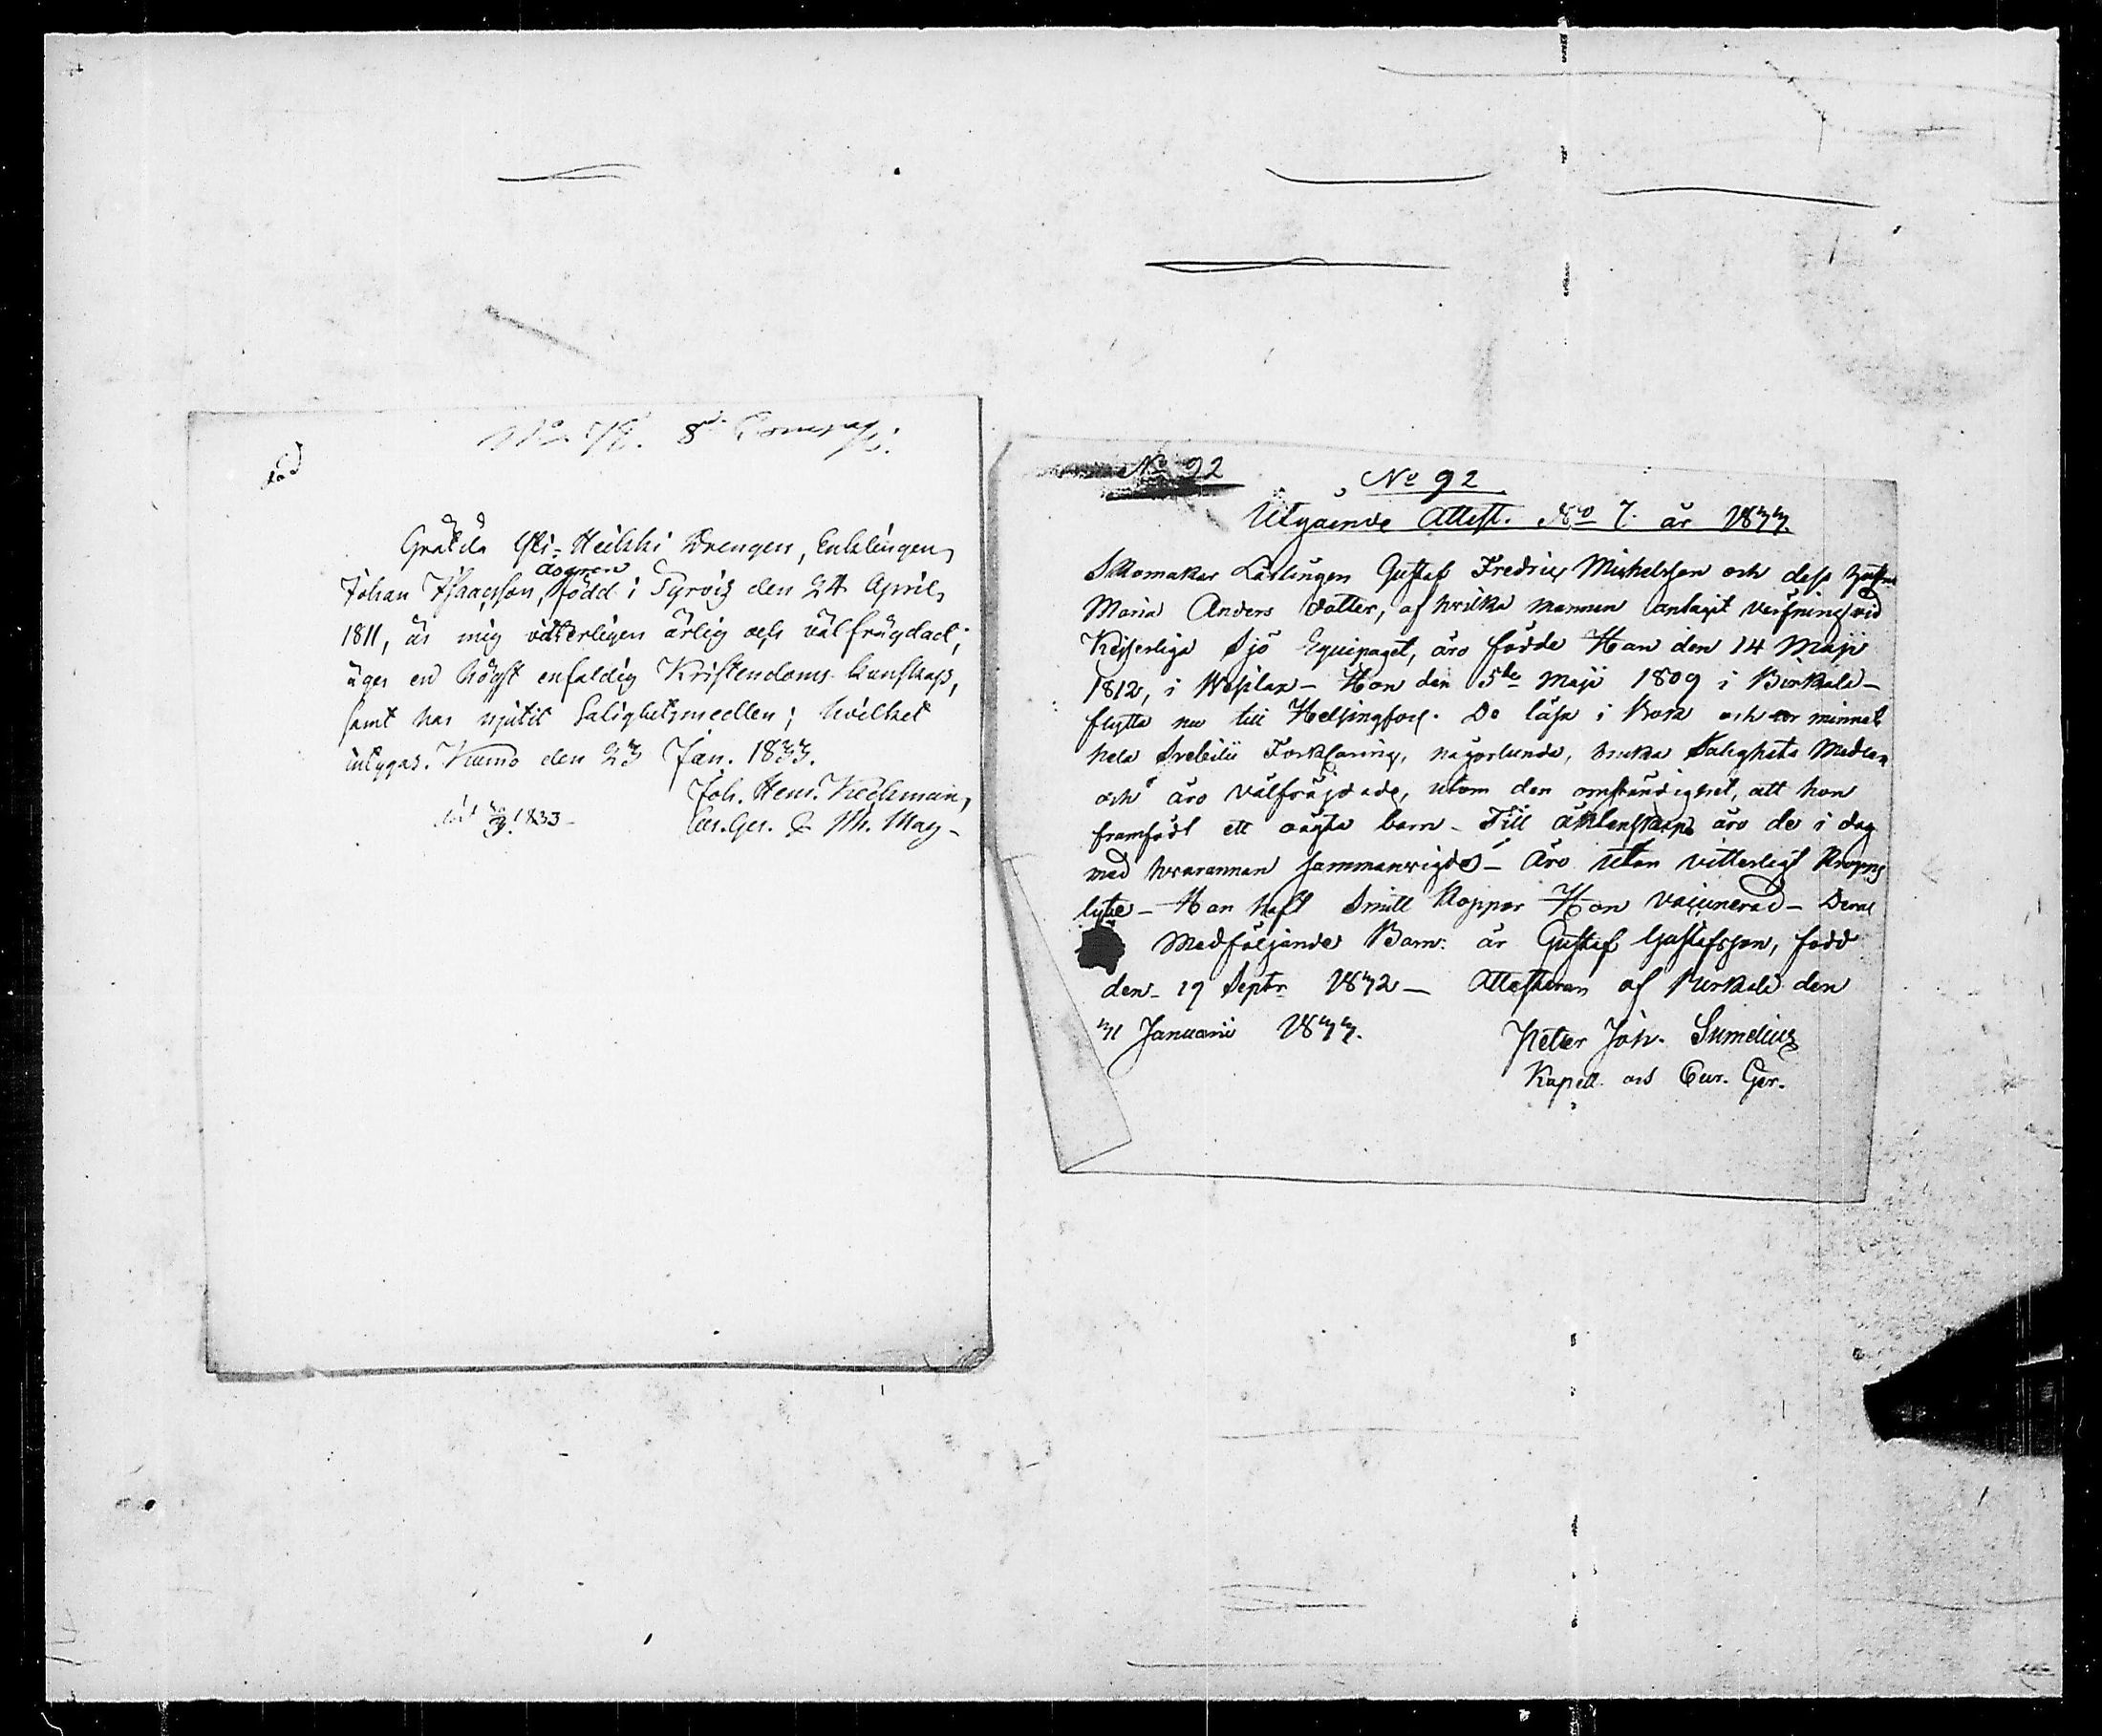 8de Compag:
Gräkilä Yli-Heikki Drengen, Enklingen
Johan Isaacsson, Asgren född i Tyrvis den 24 April
1811, är mig vitterligen ärlig och välfrägdad;
äger en högst enfaldig Kristendoms kunskap,
samt har njutit Salighetsmedlen; hvilket
intygas. Kumo den 23 Jan. 1833.
Joh. Henr.
1833 –
No 92
No 92
Utgående Attest. No 7. år 1833.
Skomakar Lärlingen Gustaf Fredric Michelsson och dess hustru
Maria Anders dotter, af hvilka mannen antagit värfning vid
Kejserliga Sjö Equipaget, äro födde Han den 14 Maji
1812, i Messlax – Hon den 5te Maji 1809 i Birkala –
flytta nu till Helsingfors. De läsa i Bok och ur minnet
hela Svebilii Förklaring, någorlunda, bruka Salighets Medlen
och äro välfräjdade, utom den omständighet, att hon
framfödt ett oägta barn – Till äktenskap äro de i dag
med hvarannan sammanvigde – Äro utan vitterligt Kropps
lyte – Han haft Smitt Koppor Hon vaccinerad – Deras
Medföljande Barn: är Gustaf Gustafsson, född
den 19 Septr 1832 – Attesteras af Birkala den
31 Januarii 1833.
Petter Joh. Sumelius
Kapell. och Cur. Ger.